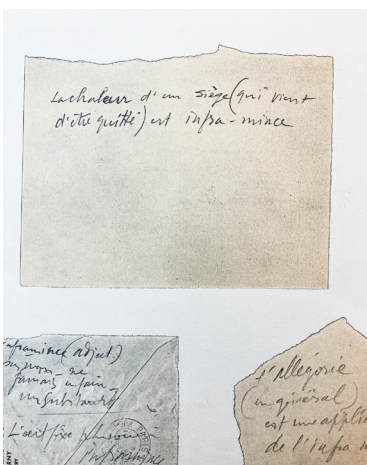 La chaleur d'un siège (qui vient
d'être quitté) est infra-mince
inframince (adject)
pas nom - ne
jamais en faire
un substantif
L'allégorie
(en général)
est une applic
de l'infra m